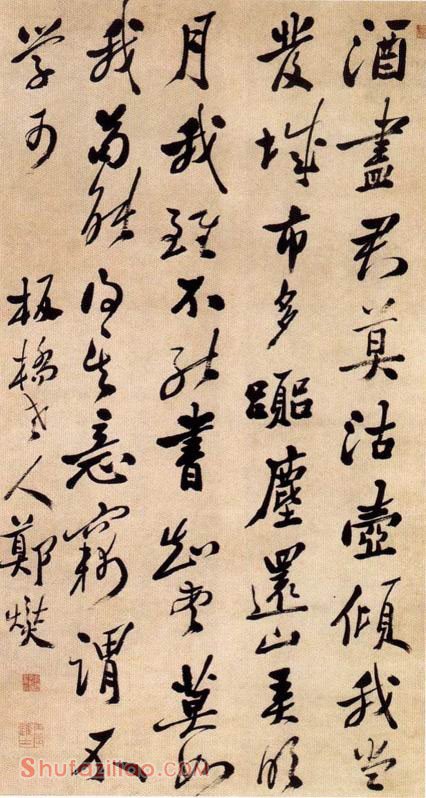 酒盡君莫沽壺傾我當
發城市多囂塵還山弄明
月我雖不能書知書莫如
我苟能得其意竊謂不
學可
板橋老人鄭燮
Shufaziliao.COM